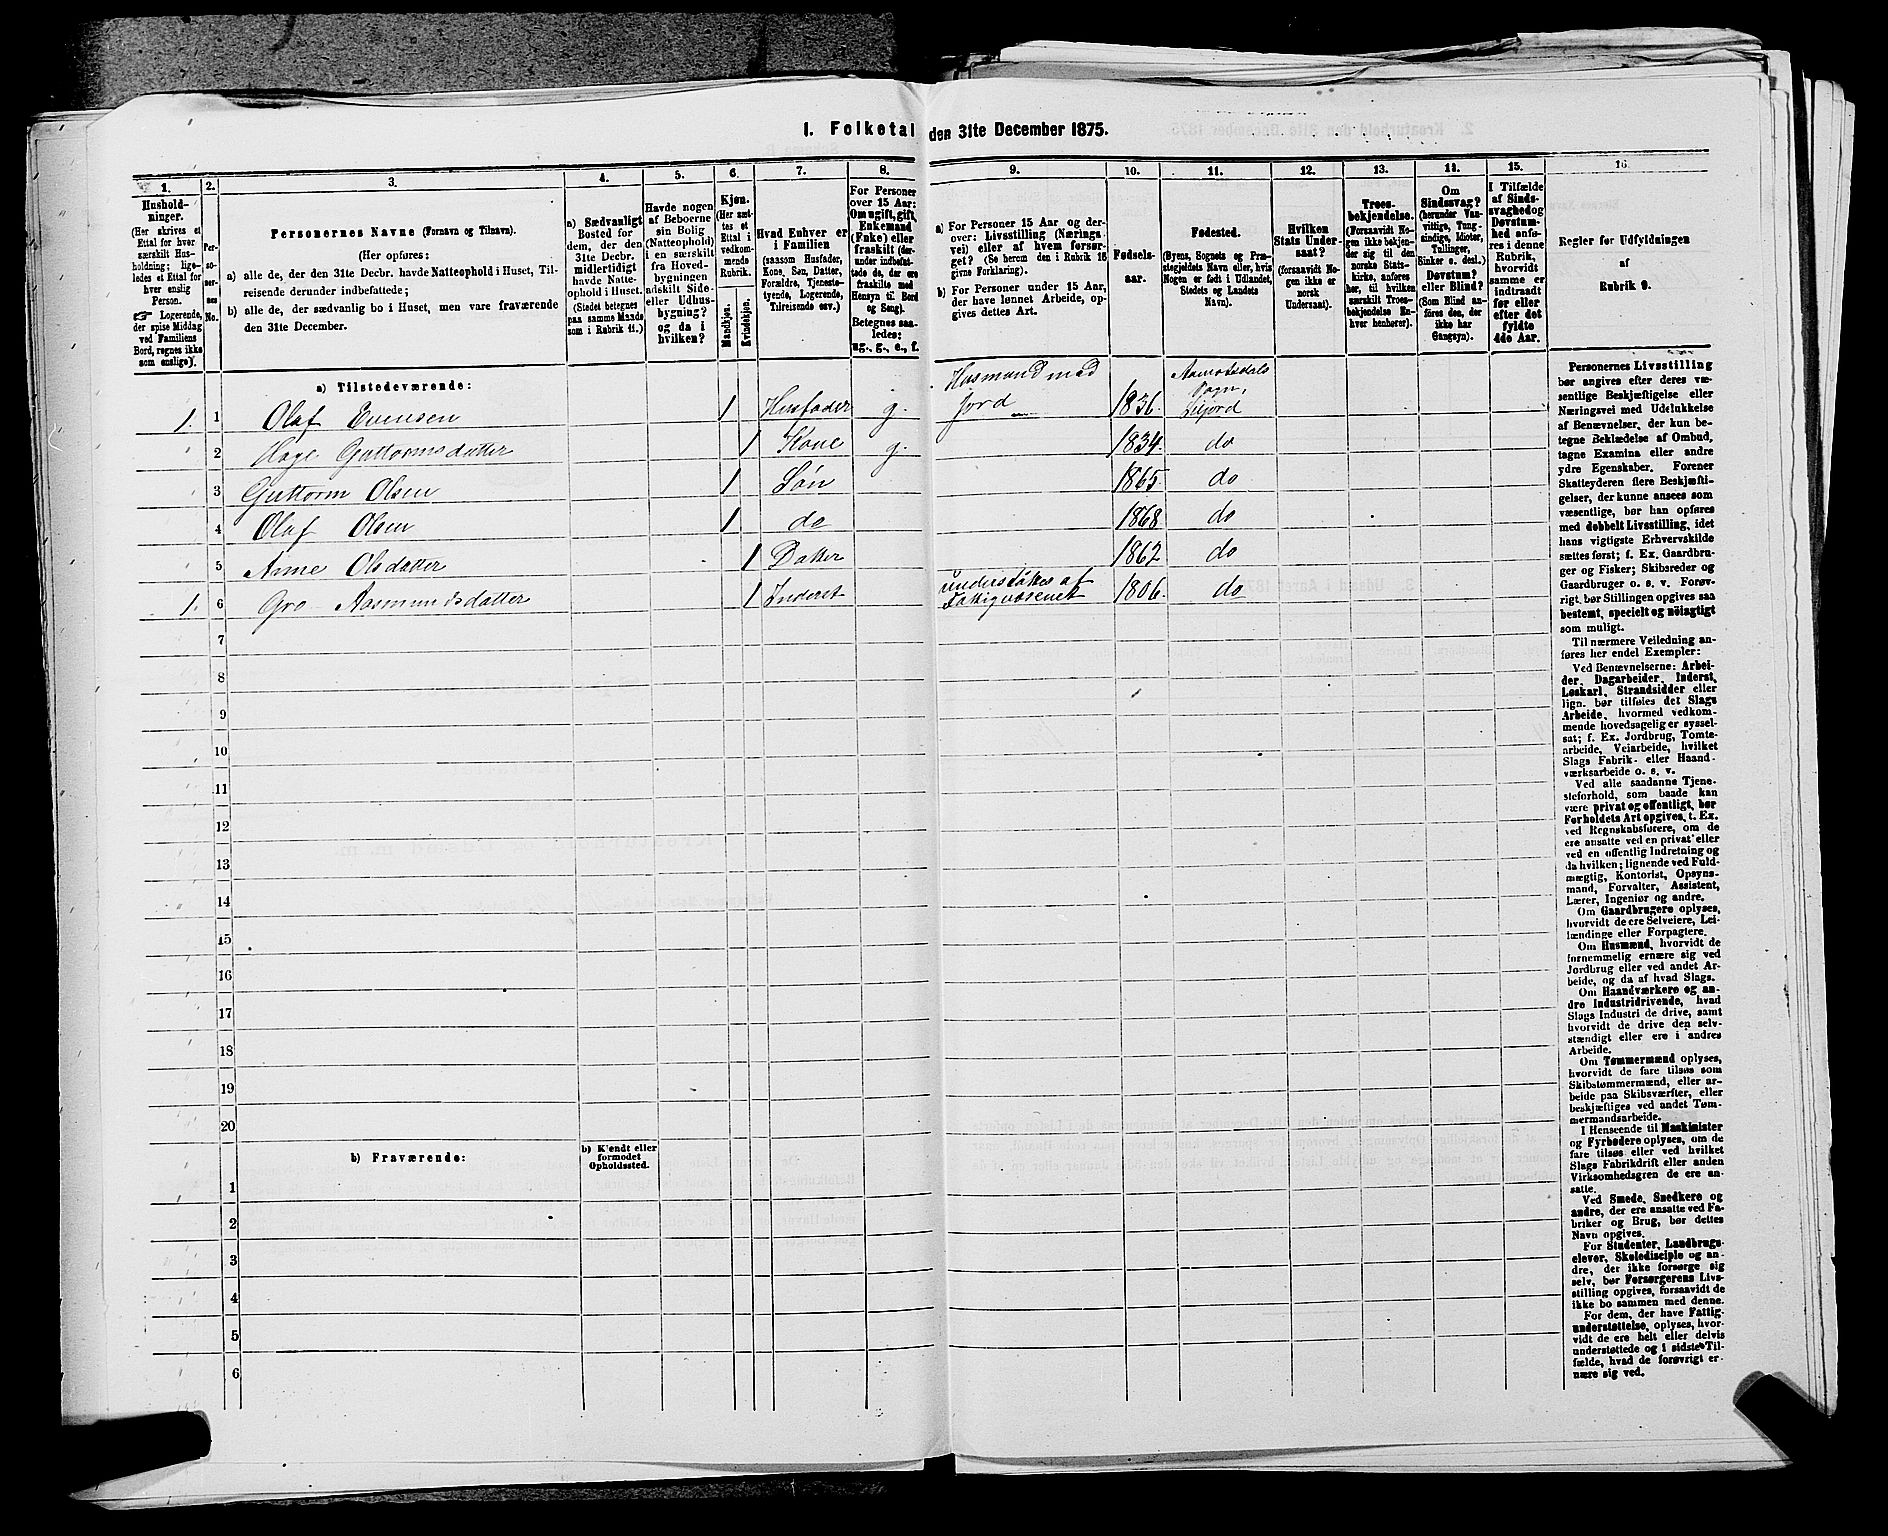 1. Folketal den 31te December 1875.
1.
2.
3.
4.
5.
6.
7.
8.
9.
10.
11.
12.
13.
14.
15.
16
Hushold-
ninger.
(Her skrives et
Ettal for hver
særskilt Hus-
holdning; lige-
ledes et Ettal for
hver enslig
Person.
☞ Logerende,
der spise Middag
ved Familiens
Bord, regnes ikke
som enslige).
Per-
so-
ner-
nes
No.
Personernes Navne (Fornavn og Tilnavn).
(Her opføres:
a) alle de, der den 31te Decbr. havde Natteophold i Huset, Til-
reisende derunder indbefattede;
b) alle de, der sædvanlig bo i Huset, men vare fraværende
den 31te December.
a) Sædvanligt
Bosted for
dem, der den
31te Decbr.
midlertidigt
havde Natte-
ophold i Huset.
(Stedet betegnes
paa samme Maade
som i Rubrik 11.)
Havde nogen
af Beboerne
sin Bolig
(Natteophold)
i en særskilt
fra Hoved-
bygningen
adskilt Side-
eller Udhus-
bygning?
og da i
hvilken?
Kjøn.
(Her sæt-
tes et
Ettal i
vedkom-
mende
Rubrik.
Mandkjøn.
Kvindekjøn.
Hvad Enhver er
i Familien
(saasom Husfader,
Kone, Søn, Datter,
Forældre, Tjeneste-
tyende, Logerende,
Tilreisende osv.)
For Personer
over 15 Aar:
Om ugift, gift,
Enkemand
(Enke) eller
fraskilt (der-
under indbefat-
tede de, der ere
fraskilte med
Hensyn til Bord
og Seng).
Betegnes saa-
ledes:
ug., g., e., f.
a) For Personer 15 Aar og der-
over: Livsstilling (Nærings
vei) eller af hvem forsør-
get? (Se herom den i Rubrik 16
givne Forklaring).
b) For Personer under 15 Aar,
der have lønnet Arbeide, op-
gives dettes Art.
Fødsels-
aar.
Fødested.
(Byens, Sognets og Præ-
stegjeldets Navn eller, hvis
Nogen er født i Udlandet,
Stedets og Landets
Navn).
Hvilken
Stats Under-
saat?
(forsaavidt No-
gen ikke er
norsk
Undersaat).
Troes-
bekjendelse.
(Forsaavidt No-
gen ikke bekjen-
der sig til den
norske Stats-
kirke, anføres
her, til hvilken
særskilt Troes-
bekjendelse En-
hver henhører).
Om
Sindssvag?
(herunder Van-
vittige, Tung-
sindige, Idioter,
Tullinger,
Sinker o. desl.)
Døvstum?
eller Blind?
(Som Blind an-
føres den, der
ikke har
Gangsyn).
I Tilfælde
af Sinds-
svaghed og
Døvstum-
hed anfø-
res i denne
Rubrik,
hvorvidt
samme er
indtraadt
før eller
efter det
fyldte
4de Aar.
Regler for Udfyldningen
af
Rubrik 9.
a) Tilstedeværende:
1. 1 Olaf Evensen 1 Husfader g. Husmand med jord 1836. Aamotsdals Sogn, Siljord
2 Hage Guttormsdatter 1 Kone g. 1834. do
3 Guttorm Olsen 1 Søn 1865. do
4 Olaf Olsen 1 do 1868 do
5 Anne Olsdatter 1 Datter 1862 do
1. 6 Gro Aasmundsdatter 1 Inderst understøttes af Fattigvæsenet 1806. do
7
8
9
10
11
12
13
14
15
16
17
18
19
20
b) Fraværende:
b) Kjendt eller
formodet
Opholdssted.
1
2
3
4
5
6
Personernes Livsstilling
bør angives efter deres væ-
sentlige Beskjæftigelse eller
Næringsvei med Udelukkelse
af Benævnelser, der kun be-
tegne Beklædelse af Ombud,
tagne Examina eller andre
ydre Egenskaber. Forener
Skatteyderen flere Beskjæfti-
gelser, der kunne ansees som
væsentlige, bør han opføres
med dobbelt Livsstilling, idet
hans vigtigste Erhvervskilde
sættes først; f. Ex. Gaardbru-
ger og Fisker; Skibsreder og
Gaardbruger o. s. v. Forøv-
rigt bør Stillingen opgives saa
bestemt, specielt og nøiagtigt
som muligt.
Til nærmere Veiledning an-
føres her endel Exempler:
Ved Benævnelserne: Arbei-
der, Dagarbeider, Inderst,
Løskarl, Strandsidder eller
lign. bør tilføies det Slags
Arbeide, hvormed vedkom-
mende hovedsagelig er syssel-
sat; f. Ex. Jordbrug, Tomte-
arbeide, Veiarbeide, hvilket
Slags Fabrik- eller Haand-
værksarbeide o. s. v.
Ved alle saadanne Tjene-
steforhold, som baade kan
være privat og offentligt, bør
Forholdets Art opgives, t. Ex.
ved Regnskabsførere, om de
ere ansatte ved en privat eller
ved en offentlig Indretning og
da hvilken; lignende ved Fuld-
mægtig, Kontorist, Opsyns-
mand, Forvalter, Assistent,
Lærer, Ingeniør og andre.
Om Gaardbrugere oplyses,
hvorvidt de ere Selveiere, Lei-
lændinge eller Forpagtere.
Om Husmænd, hvorvidt de
fornemmelig ernære sig ved
Jordbrug eller ved andet Ar-
beide, og da af hvad Slags.
Om Haandværkere og an-
dre Industridrivende, hvad
Slags Industri de drive, samt
hvorvidt de drive den selv-
stændigt eller ere i andres
Arbeide.
Om Tømmermænd oplyses,
hvorvidt de fare tilsøs som
Skibstømmermænd, eller ar-
beide paa Skibsværfter, eller
beskjæftiges ved andet Tøm-
mermandsarbeide.
I Henseende til Maskinister
og Fyrbødere oplyses, om de
fare tilsøs eller ved hvilket
Slags Fabrikdrift eller anden
Virksomhedsgren de ere an-
satte.
Ved Smede, Snedkere og
andre, der ere ansatte ved Fa-
briker og Brug, bør dettes
Navn opgives.
For Studenter, Landbrugs-
elever, Skoledisciple og an-
dre, der ikke forsørge sig
selv, bør Forsørgerens Livs-
stilling opgives, forsaavidt de
ikke bo sammen med denne.
For dem, der have Fattig-
understøttelse, oplyses, hvor-
vidt de ere helt eller delvis
understøttede og i sidste Til-
fælde, hvad de forøvrigt er-
nære sig ved.